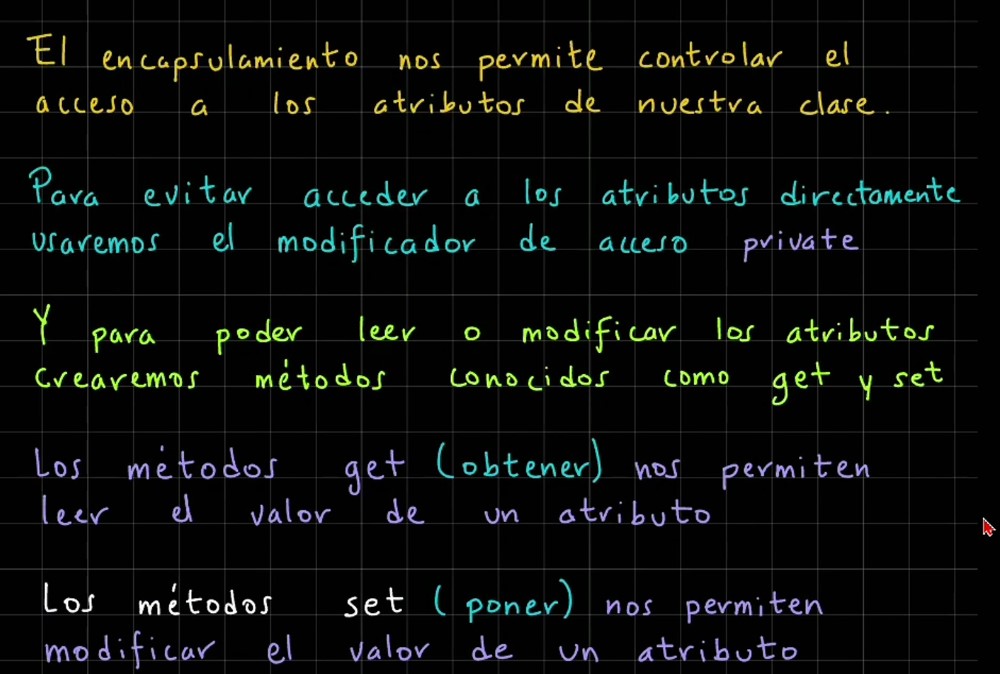 El encapsulamiento nos permite controlar el
acceso a los atributos de nuestra clase.
Para evitar acceder a los atributos directamente
usaremos el modificador de acceso private
Y para poder leer o modificar los atributos
crearemos métodos conocidos como get y set
Los métodos get (obtener) nos permiten
leer el valor de un atributo
Los métodos set (poner) nos permiten
modificar el valor de un atributo